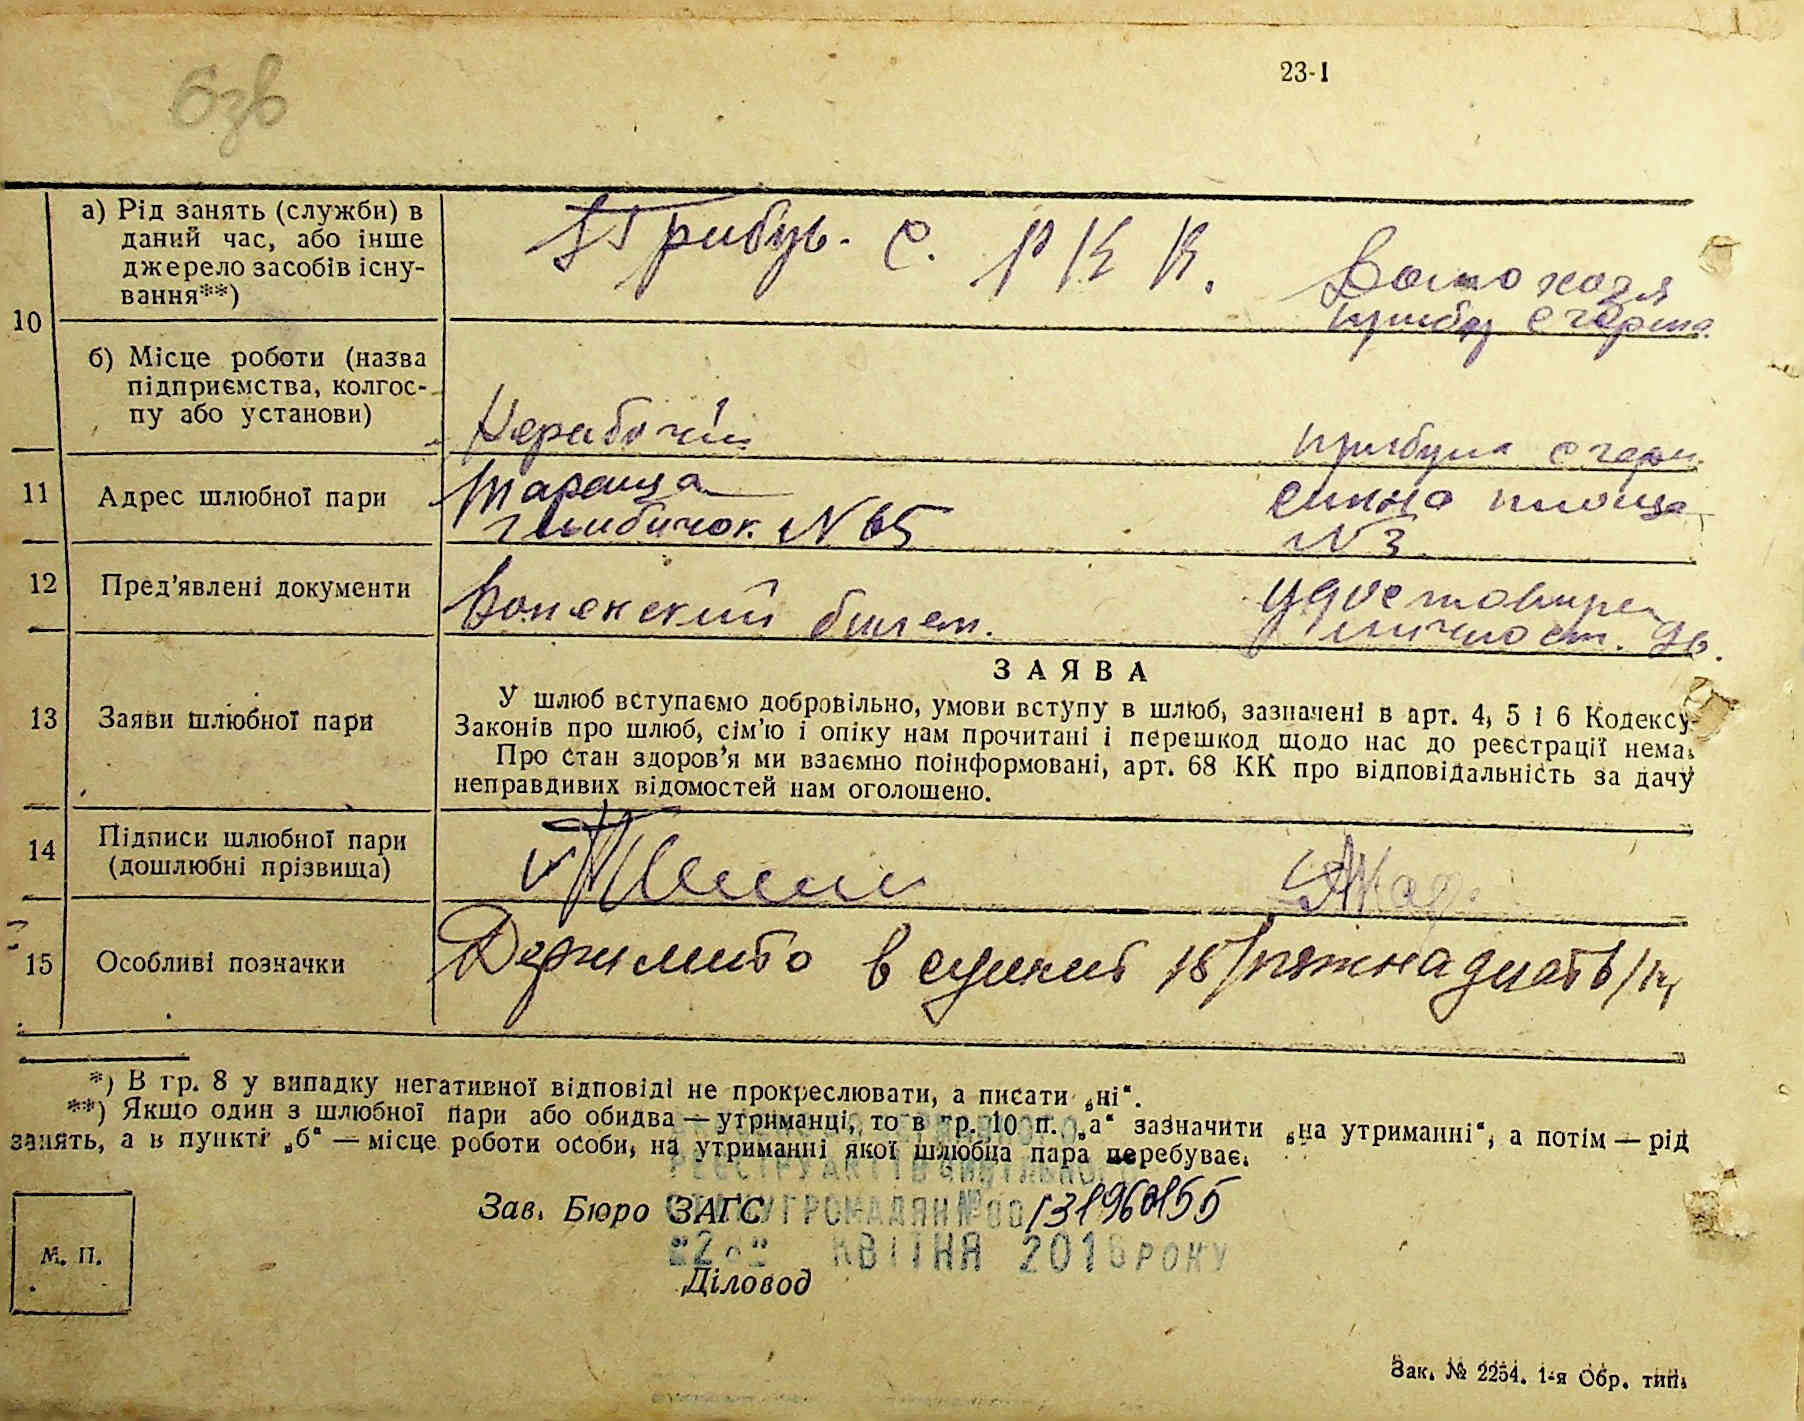 23-I
а) Рід занять (служби) в
даний час, або інше
джерело засобів існу-
вання**)
Прибув. с. Р К К.
10
б) Місце роботи (назва
підприємства, колгос-
пу або установи)
Нерабочій
прибула с герм.
11 Адрес шлюбної пари
Тараща
N 65
сінна площа
N 3
12 Пред’явлені документи
Воненский билет.
личност.
13 Заяви шлюбної пари
ЗАЯВА
У шлюб вступаємо добровільно, умови вступу в шлюб, зазначені в арт. 4, 5 і 6 Кодексу
Законів про шлюб, сім’ю і опіку нам прочитані і перешкод щодо нас до реєстрації нема.
Про стан здоров’я ми взаємно поінформовані, арт. 68 КК про відповідальність за дачу
неправдивих відомостей нам оголошено.
14 Підписи шлюбної пари
(дошлюбні прізвища)
15 Особливі позначки
Держмито в сумі 15/пятнадцать/
*) В гр. 8 у випадку негативної відповіді не прокреслювати, а писати „ні“.
**) Якщо один з шлюбної пари або обидва — утриманці, то в гр. 10 п. „а“ зазначити „на утриманні“, а потім — рід
занять, а в пункті „б“ — місце роботи особи, на утриманні якої шлюбна пара перебуває.
РЕЄСТРУ АКТІВ ЦИВІЛЬНОГО
СТАНУ ГРОМАДЯН № 00131960155
Зав. Бюро ЗАГС
КВІТНЯ 2016 РОКУ
Діловод
М. П.
Зак. № 2254. 1-я Обр. тип.